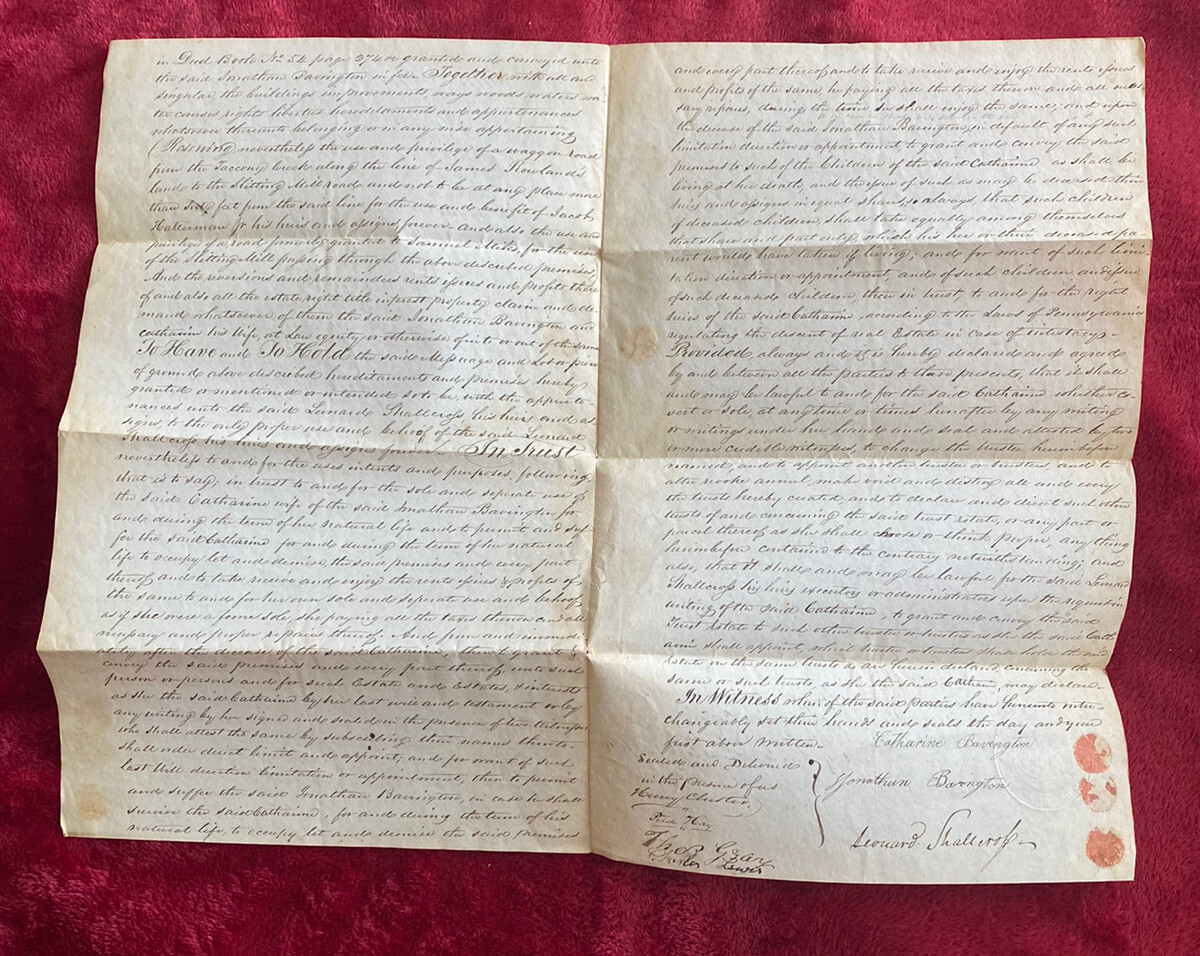 in Deed Book No 54 page 274 re granted and conveyed unto
the said Jonathan Bavington in fee Together with all and
singular the buildings improvements ways woods waters wa
ter courses rights liberties hereditaments and appurtenances
whatsoever thereunto belonging or in any wise appertaining
(Reserving nevertheless the use and privilege of a waggon road
from the Tacony Creek along the line of James Rowland's
land to the Slitting Mill road and not to be at any place more
than feet from the said line for the use and benefit of Jacob
Halterman Jr his heirs and assigns forever and also the use and
privilege of a road formerly granted to Samuel Miles, for the use
of the Slitting Mill passing through the above described premises,
And the reversions and remainders rents issues and profits there
of and also all the estate right title interest property claim and de
mand whatsoever of them the said Jonathan Bavington and
Catharine his Wife, at Law equity or otherwise of in to or out of the same
To Have and To Hold the said Messuage and Lot or piece
of ground above described hereditaments and premises hereby
granted or mentioned or intended so to be, with the appurte-
nances unto the said Leonard Shallcross his heirs and as
signs, to the only proper use and behoof of the said Leonard
Shallcross his heirs and assigns forever – In Trust
nevertheless to and for the uses intents and purposes, following
that is to say; in trust to and for the sole and seperate use of
the said Catharine wife of the said Jonathan Bavington for
and during the term of her natural life and to permit and suf-
fer the said Catharine for and during the term of her natural
life to occupy let and demise the said premises and every part
thereof, and to take receive and enjoy the rents issues & profits of
the same to and for her own sole and seperate use and behoof,
as if she were a feme sole, she paying all the taxes thereon and all
necessary and proper repairs thereof. And from and immed
iately after the decease of the said Catharine, then to grant &
convey the said premises and every part thereof, unto such
person or persons and for such Estate and Estates, & interests
as she the said Catharine by her last will and testament or by
any writing by her signed and sealed in the presence of two witnesses
who shall attest the same by subscribing their names thereto
shall order direct limit and appoint; and for want of such
last Will direction limitation or appointment, then to permit
and suffer the said Jonathan Bavington, in case he shall
survive the said Catharine, for and during the term of his
natural life, to occupy, let and demise the said premises
and every part thereof and to take receive and enjoy the rents issues
and profits of the same he paying all the taxes thereon and all neces
sary repairs, during the time he shall enjoy the same; and upon
the decease of the said Jonathan Bavington, in default of any such
limitation direction or appointment to grant and convey the said
premises to such of the Children of the said Catharine as shall be
living at her death, and the issue of such as may be deceased their
heirs and assigns in equal shares, so always, that such children
of deceased children, shall take equally among themselves
that share and part only, which his her or their deceased pa
rent would have taken if living; and for want of such limi
tation direction or appointment, and of such children and issue
of such deceased children, then in trust, to and for the right
heirs of the said Catharine according to the Laws of Pennsylvania
regulating the descent of real Estate in case of intestacy –
Provided, always and it is hereby declared and agreed
by and between all the parties to these presents, that it shall
and may be lawful to and for the said Catharine whether co
vert or sole, at any time or times hereafter by any writing
or writings under her hand and seal and attested by two
or more credible witnesses, to change the trustee herein before
named, and to appoint another trustee or trustees, and to
alter revoke annul make void and destroy all and every
the trusts hereby created and to declare and direct such other
trusts of and concerning the said trust estate, or any part or
parcel thereof as she shall choose or think proper, any thing
herein before contained to the contrary notwithstanding; and
also, that it shall and may be lawful for the said Leonard
Shallcross his heirs executors or administrators upon the request in
writing of the said Catharine to grant and convey the said
Trust Estate to such other trustee or trustees as she the said Cath
arine shall appoint, which trustee or trustees shall hold the said
Estate on the same trusts as are herein declared concerning the
same or such trusts, as she the said Catharine, may declare –
In Witness whereof the said parties have hereunto inter-
changeably set their hands and seals the day and year
first above Written –
Catharine Bavington
Sealed and Delivered
in the presence of us
Jonathan Bavington
Henry Chester
Leonard Shallcross
Th B Gray
Lewis